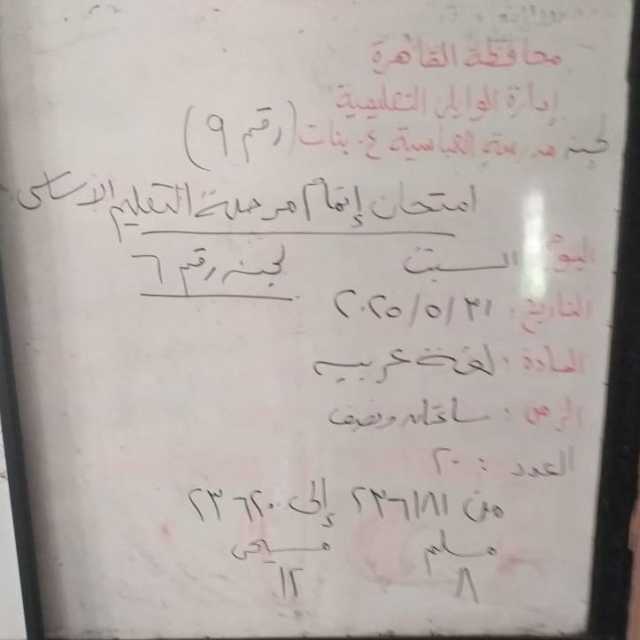 محافظة القاهرة
إدارة الوايلى التعليمية
لجنة مدرسة العباسية ع. بنات (رقم ٩)
امتحان إتمام مرحلة التعليم الأساسى
اليوم: السبت لجنة رقم ٦
التاريخ: ٣١/٥/٢٠٢٥
المادة: لغة عربيه
الزمن: ساعتان ونصف
العدد: ٢٠
من ٢٣٦١٨١ إلى ٢٣٦٢٠٠
مسلم مسيحى
٨ ١٢